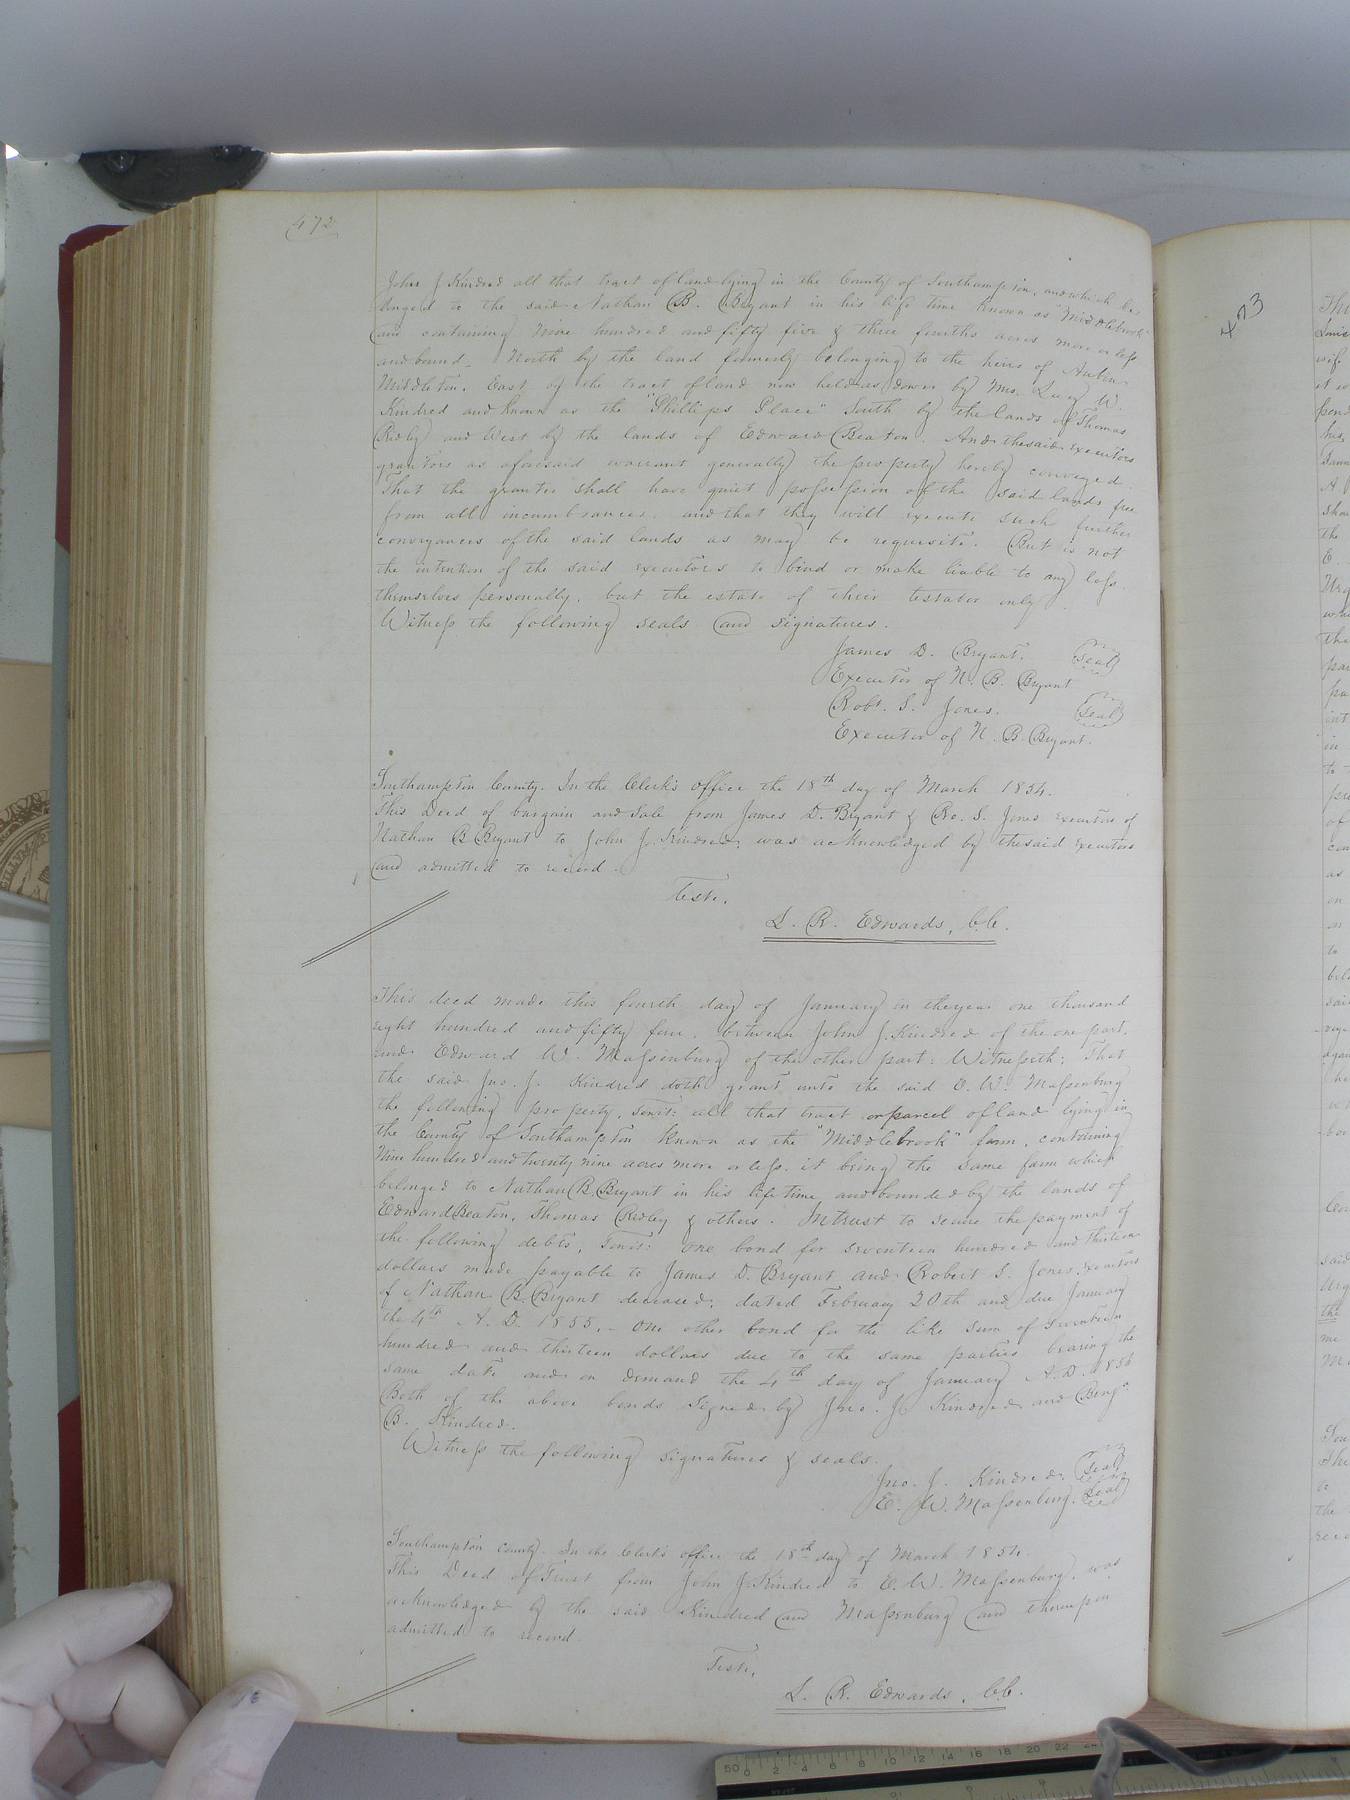 472
John J Kindred all that tract of land lying in the County of Southampton, and which be-
longed to the said Nathan B. Bryant in his life time known as "Middlebrook"
and containing Nine hundred and fifty five & three fourths acres more or less
and bound- North by the land formerly belonging to the heirs of
Middleton. East by the tract of land now held as dower by Mrs. Lucy W.
Kindred and known as the "Phillips Place" South by the lands of Thomas
Ridley and West by the lands of Edward Beaton. And the said executors
grantors as aforesaid warrant generally the property hereby conveyed.
That the grantee shall have quiet possession of the said lands free
from all incumbrances. and that they will execute such further
conveyances of the said lands as may be requisite. But is not
the intention of the said executors to bind or make liable to any loss.
themselves personally. but the estate of their testator only.
Witness the following seals and signatures.
James D. Bryant. Seal
Executor of N. B. Bryant
Robt. S. Jones. Seal
Executor of N. B. Bryant.
Southampton County. In the Clerk's office the 18th day of March 1854.
This Deed of bargain and Sale from James D. Bryant & Ro. S. Jones executors of
Nathan B Bryant to John J. Kindred, was acknowledged by the said executors
and admitted to record.
Teste,
L. R. Edwards, C.C.
This deed made this fourth day of January in the year one thousand
eight hundred and fifty four. between John J. Kindred of the one part.
and Edward W. Massenburg of the other part: Witnesseth: That
the said Jno. J. Kindred doth grant unto the said E. W. Massenburg
the following property, towit: all that tract or parcel of land lying in
the County of Southampton known as the "Middlebrook" farm, containing
Nine hundred and twenty nine acres more or less. it being the same farm which
belonged to Nathan B. Bryant in his life time and bounded by the lands of
Edward Beaton, Thomas Ridley & others. In trust to secure the payment of
the following debts, towit: One bond for seventeen hundred and thirteen
dollars made payable to James D. Bryant and Robert S. Jones, executors
of Nathan B. Bryant deceased; dated February 20th and due January
the 4th A. D. 1855. - One other bond for the like sum of Seventeen
hundred and thirteen dollars due to the same parties bearing the
same date and on demand the 4th day of January A. D. 1856
Both of the above bonds signed by Jno. J. Kindred and Benj.
B. Kindred.
Witness the following signatures & seals.
Jno. J. Kindred. Seal
E. W. Massenburg. Seal
Southampton county. In the Clerk's office the 18th day of March 1854.
This Deed of Trust from John J. Kindred to E. W. Massenburg. was
acknowledged by the said Kindred and Massenburg and thereupon
admitted to record.
Teste,
L. R. Edwards, C.C.
473